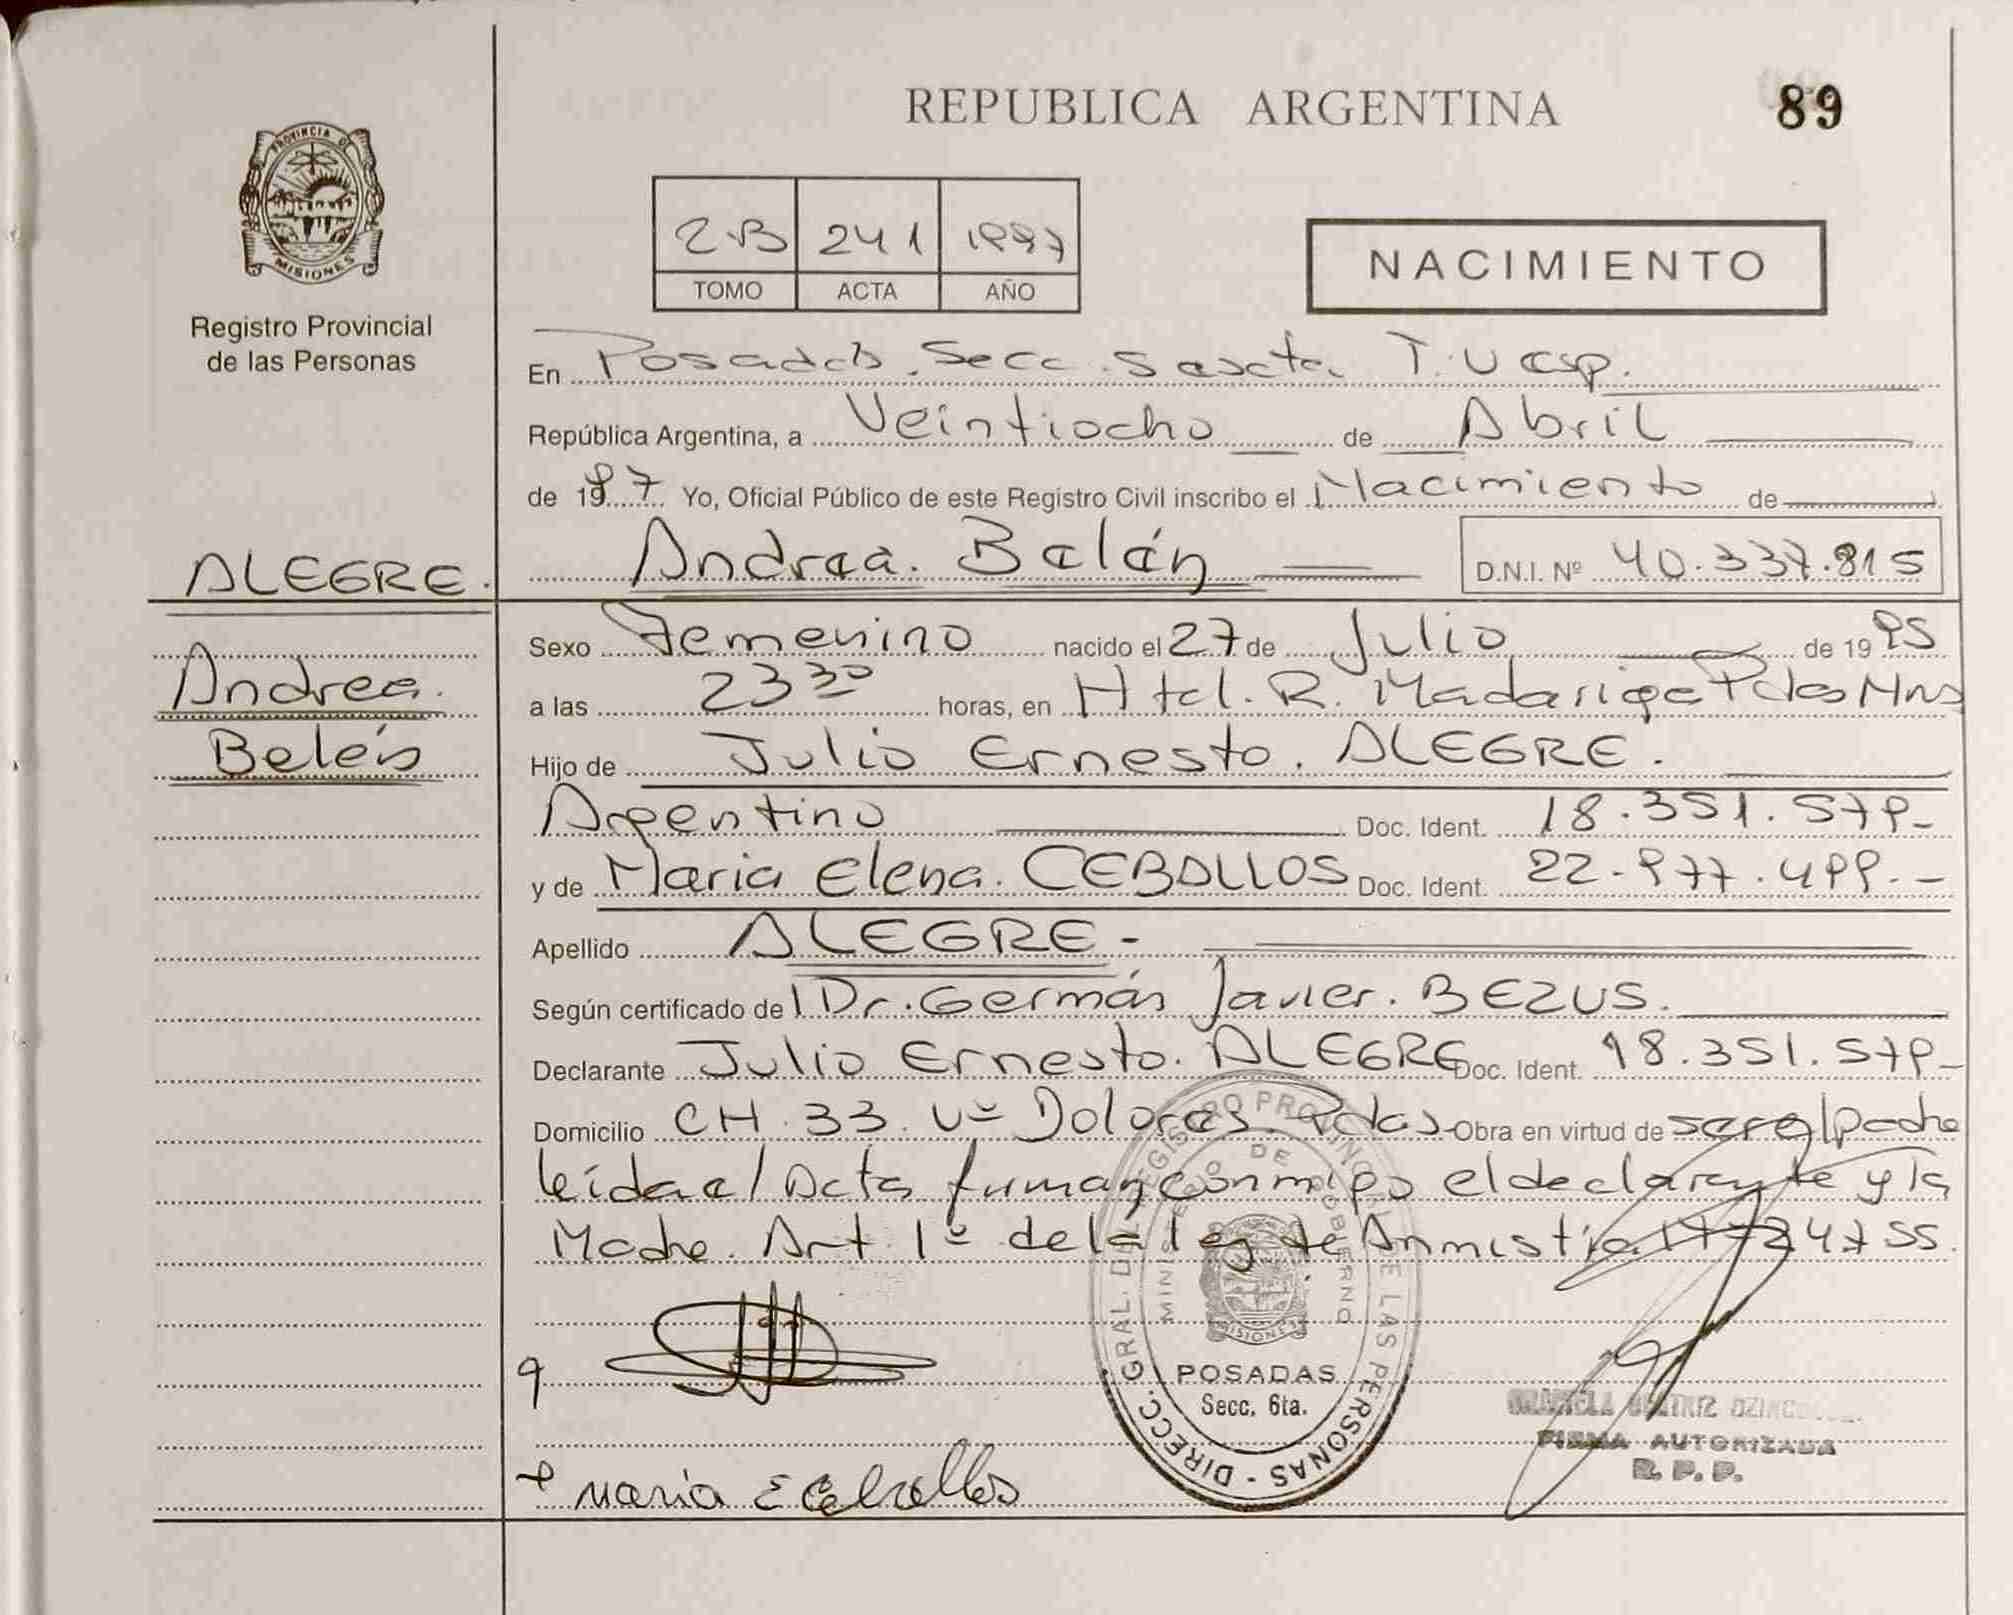 REPUBLICA ARGENTINA
89
PROVINCIA DE
MISIONES
Registro Provincial
de las Personas
2-B 241 1997
TOMO ACTA AÑO
NACIMIENTO
En Posadas. Secc. Sexta T.V esp.
República Argentina, a Veintiocho de Abril
de 1997 Yo, Oficial Público de este Registro Civil inscribo el Nacimiento de
Andrea. Belén D.N.I. Nº 40.337.815
ALEGRE.
Andrea.
Belén
Sexo Femenino nacido el 27 de Julio de 1995
a las 23 30 horas, en Htal. R. Madariaga Pdas Mns
Hijo de Julio Ernesto. ALEGRE.
Argentino Doc. Ident. 18.351.579-
y de Maria Elena. CEBALLOS Doc. Ident. 22.977.499.-
Apellido ALEGRE-
Según certificado de l Dr. Germán Javier. BEZUS.
Declarante Julio Ernesto. ALEGRE Doc. Ident. 18.351.579-
Domicilio CH. 33. Vº Dolores. Pdas- Obra en virtud de ser el padre
leída el Acta firman conmigo el declarante y la
Madre. Art. 1º de la ley de Amnistia 24755.
DIRECC. GRAL. DEL REGISTRO PROVINCIAL DE LAS PERSONAS -
MINISTERIO DE GOBIERNO
MISIONES
POSADAS
Secc. 6ta.
Maria E Ceballos
GRACIELA BEATRIZ
FIRMA AUTORIZADA
R. P. P.